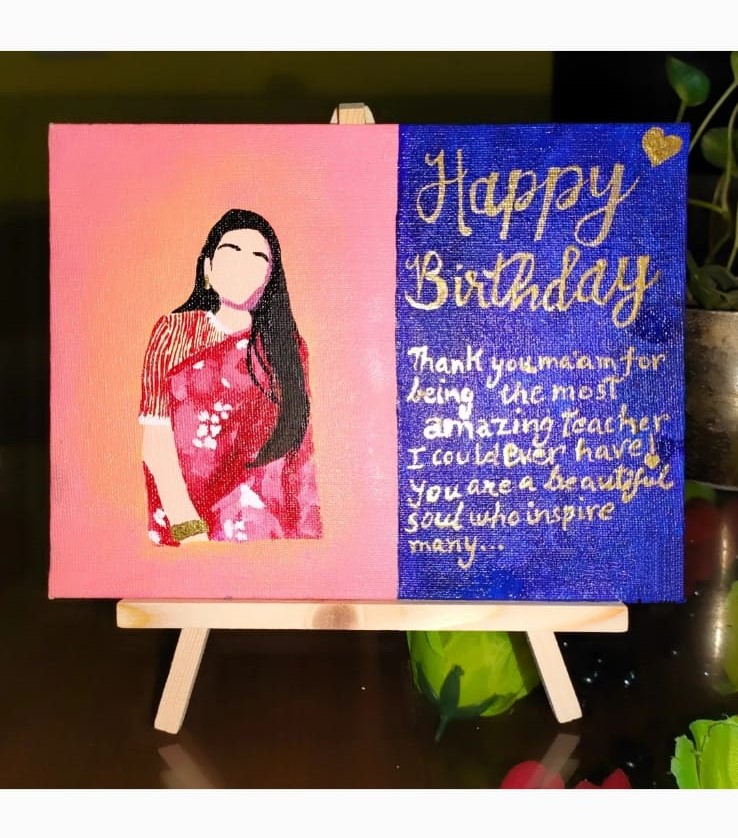 Happy
Birthday
Thank you ma'am for
being the most
amazing teacher
I could ever have!
You are a beautiful
soul who inspire
many...